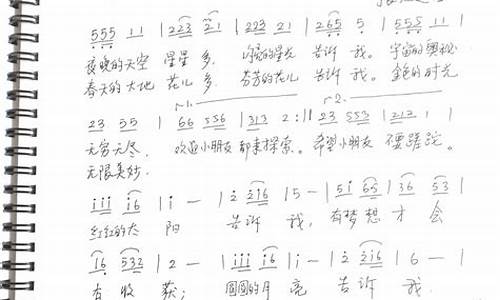 555 11 | 223 21 | 223 21 | 265 5 | 555 11 |
夜晚的天空 星星 多. 闪亮的星光 告诉 我。宇宙的奥秘
春天的大地 花儿 多. 芬芳的花儿 告诉 我。金色的时光
1. 2.
23 55 | 66 556 | 313 2 :|| 23 553 | 212 1 |
无穷无尽. 欢迎小朋友 都来探索。希望小朋友 要蹉跎。
无限美妙.
iii i6 | i - | 2 316 | 5 - | 5i 65 | 36 53 |
红红的太 阳 告诉 我, 有梦想 才 会
16 532 | 2 - | iii i6 | i - | 2 316 | 6 - |
有 收 获; 圆圆的月 亮 告诉 我